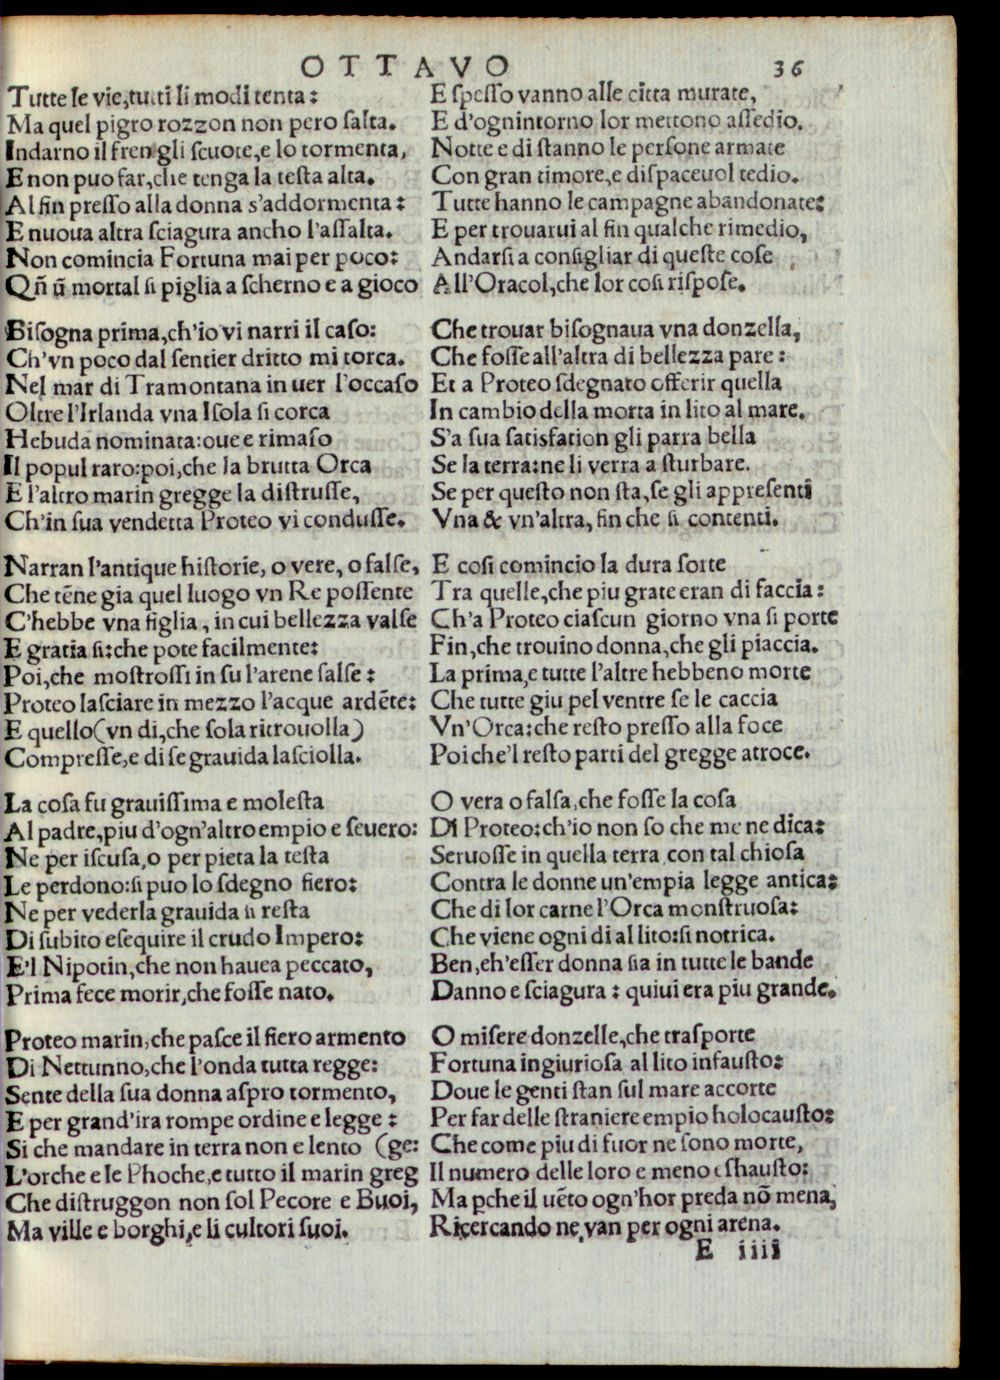 OTTAVO 36
Tutte le vie, tutti li modi tenta:
Ma quel pigro rozzon non pero salta.
Indarno il fren gli scuote, e lo tormenta,
E non puo far, che tenga la testa alta.
Al fin presso alla donna s'addormenta:
E nuoua altra sciagura ancho l'assalta.
Non comincia Fortuna mai per poco:
Qñ ũ mortal si piglia a scherno e a gioco
Bisogna prima, ch'io vi narri il caso:
Ch'vn poco dal sentier dritto mi torca.
Nel mar di Tramontana in uer l'occaso
Oltre l'Irlanda vna Isola si corca
Hebuda nominata: oue e rimaso
Il popul raro: poi, che la brutta Orca
E l'altro marin gregge la distrusse,
Ch'in sua vendetta Proteo vi condusse.
Narran l'antique historie, o vere, o false,
Che tẽne gia quel luogo vn Re possente
C'hebbe vna figlia, in cui bellezza valse
E gratia si: che pote facilmente:
Poi, che mostrossi in su l'arene salse:
Proteo lasciare in mezzo l'acque ardẽte:
E quello (vn di, che sola ritrouolla)
Compresse, e di se grauida lasciolla.
La cosa fu grauissima e molesta
Al padre, piu d'ogn'altro empio e seuero:
Ne per iscusa, o per pieta la testa
Le perdono: si puo lo sdegno fiero:
Ne per vederla grauida si resta
Di subito esequire il crudo Impero:
E'l Nipotin, che non hauea peccato,
Prima fece morir, che fosse nato.
Proteo marin, che pasce il fiero armento
Di Nettunno, che l'onda tutta regge:
Sente della sua donna aspro tormento,
E per grand'ira rompe ordine e legge:
Si che mandare in terra non e lento (ge:
L'orche e le Phoche, e tutto il marin greg
Che distruggon non sol Pecore e Buoi,
Ma ville e borghi, e li cultori suoi.
E spesso vanno alle citta murate,
E d'ognintorno lor mettono assedio.
Notte e di stanno le persone armate
Con gran timore, e dispaceuol tedio.
Tutte hanno le campagne abandonate:
E per trouarui al fin qualche rimedio,
Andarsi a consigliar di queste cose
All'Oracol, che lor cosi rispose.
Che trouar bisognaua vna donzella,
Che fosse all'altra di bellezza pare:
Et a Proteo sdegnato offerir quella
In cambio della morta in lito al mare.
S'a sua satisfation gli parra bella
Se la terra: ne li verra a sturbare.
Se per questo non sta, se gli appresenti
Vna & vn'altra, fin che si contenti.
E cosi comincio la dura sorte
Tra quelle, che piu grate eran di faccia:
Ch'a Proteo ciascun giorno vna si porte
Fin, che trouino donna, che gli piaccia.
La prima, e tutte l'altre hebbeno morte
Che tutte giu pel ventre se le caccia
Vn'Orca: che resto presso alla foce
Poi che'l resto parti del gregge atroce.
O vera o falsa, che fosse la cosa
Di Proteo: ch'io non so che me ne dica:
Seruosse in quella terra con tal chiosa
Contra le donne un'empia legge antica:
Che di lor carne l'Orca monstruosa:
Che viene ogni di al lito: si notrica.
Ben, eh'esser donna sia in tutte le bande
Danno e sciagura: quiui era piu grande.
O misere donzelle, che trasporte
Fortuna ingiuriosa al lito infausto:
Doue le genti stan sul mare accorte
Per far delle straniere empio holocausto:
Che come piu di fuor ne sono morte,
Il numero delle loro e meno eshausto:
Ma pche il uẽto ogn'hor preda nõ mena,
Ricercando ne, van per ogni arena.
E iiii